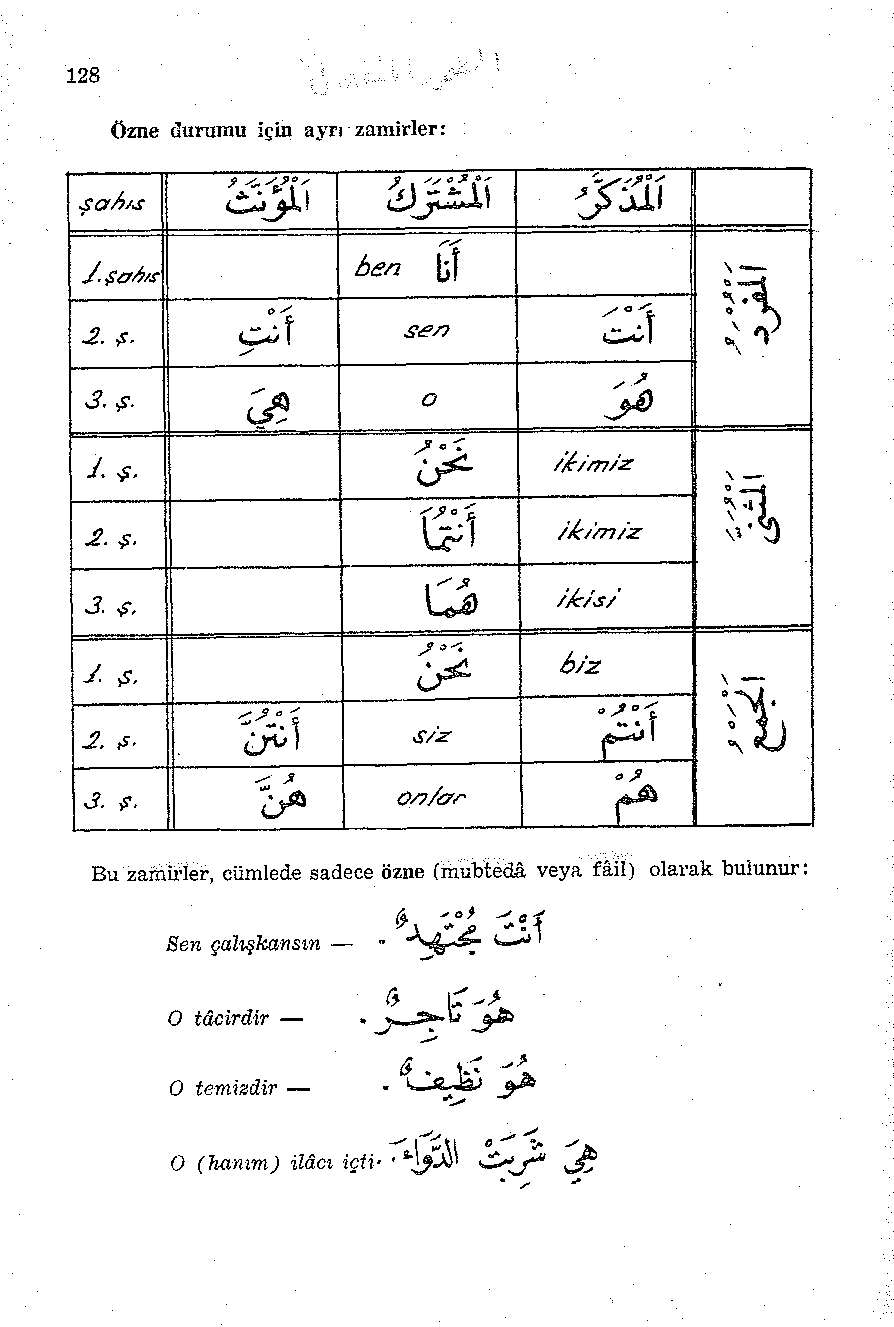 128
Özne durumu için ayrı zamirler:
şahıs اَلْمُؤَنَّثُ اَلْمُشْتَرَكُ اَلْمُذَكَّرُ
1. şahıs ben أَنَا اَلْمُفْرَدُ
2. ş. أَنْتِ sen أَنْتَ
3. ş. هِيَ o هُوَ
1. ş. نَحْنُ ikimiz اَلْمُثَنَّى
2. ş. أَنْتُمَا ikimiz
3. ş. هُمَا ikisi
1. ş. نَحْنُ biz اَلْجَمْعُ
2. ş. أَنْتُنَّ siz أَنْتُمْ
3. ş. هُنَّ onlar هُمْ
Bu zamirler, cümlede sadece özne (mubtedâ veya fâil) olarak bulunur:
Sen çalışkansın — أَنْتَ مُجْتَهِدٌ .
O tâcirdir — هُوَ تَاجِرٌ .
O temizdir — هُوَ نَظِيفٌ .
O (hanım) ilâcı içti. هِيَ شَرِبَتْ الدَّوَاءَ .